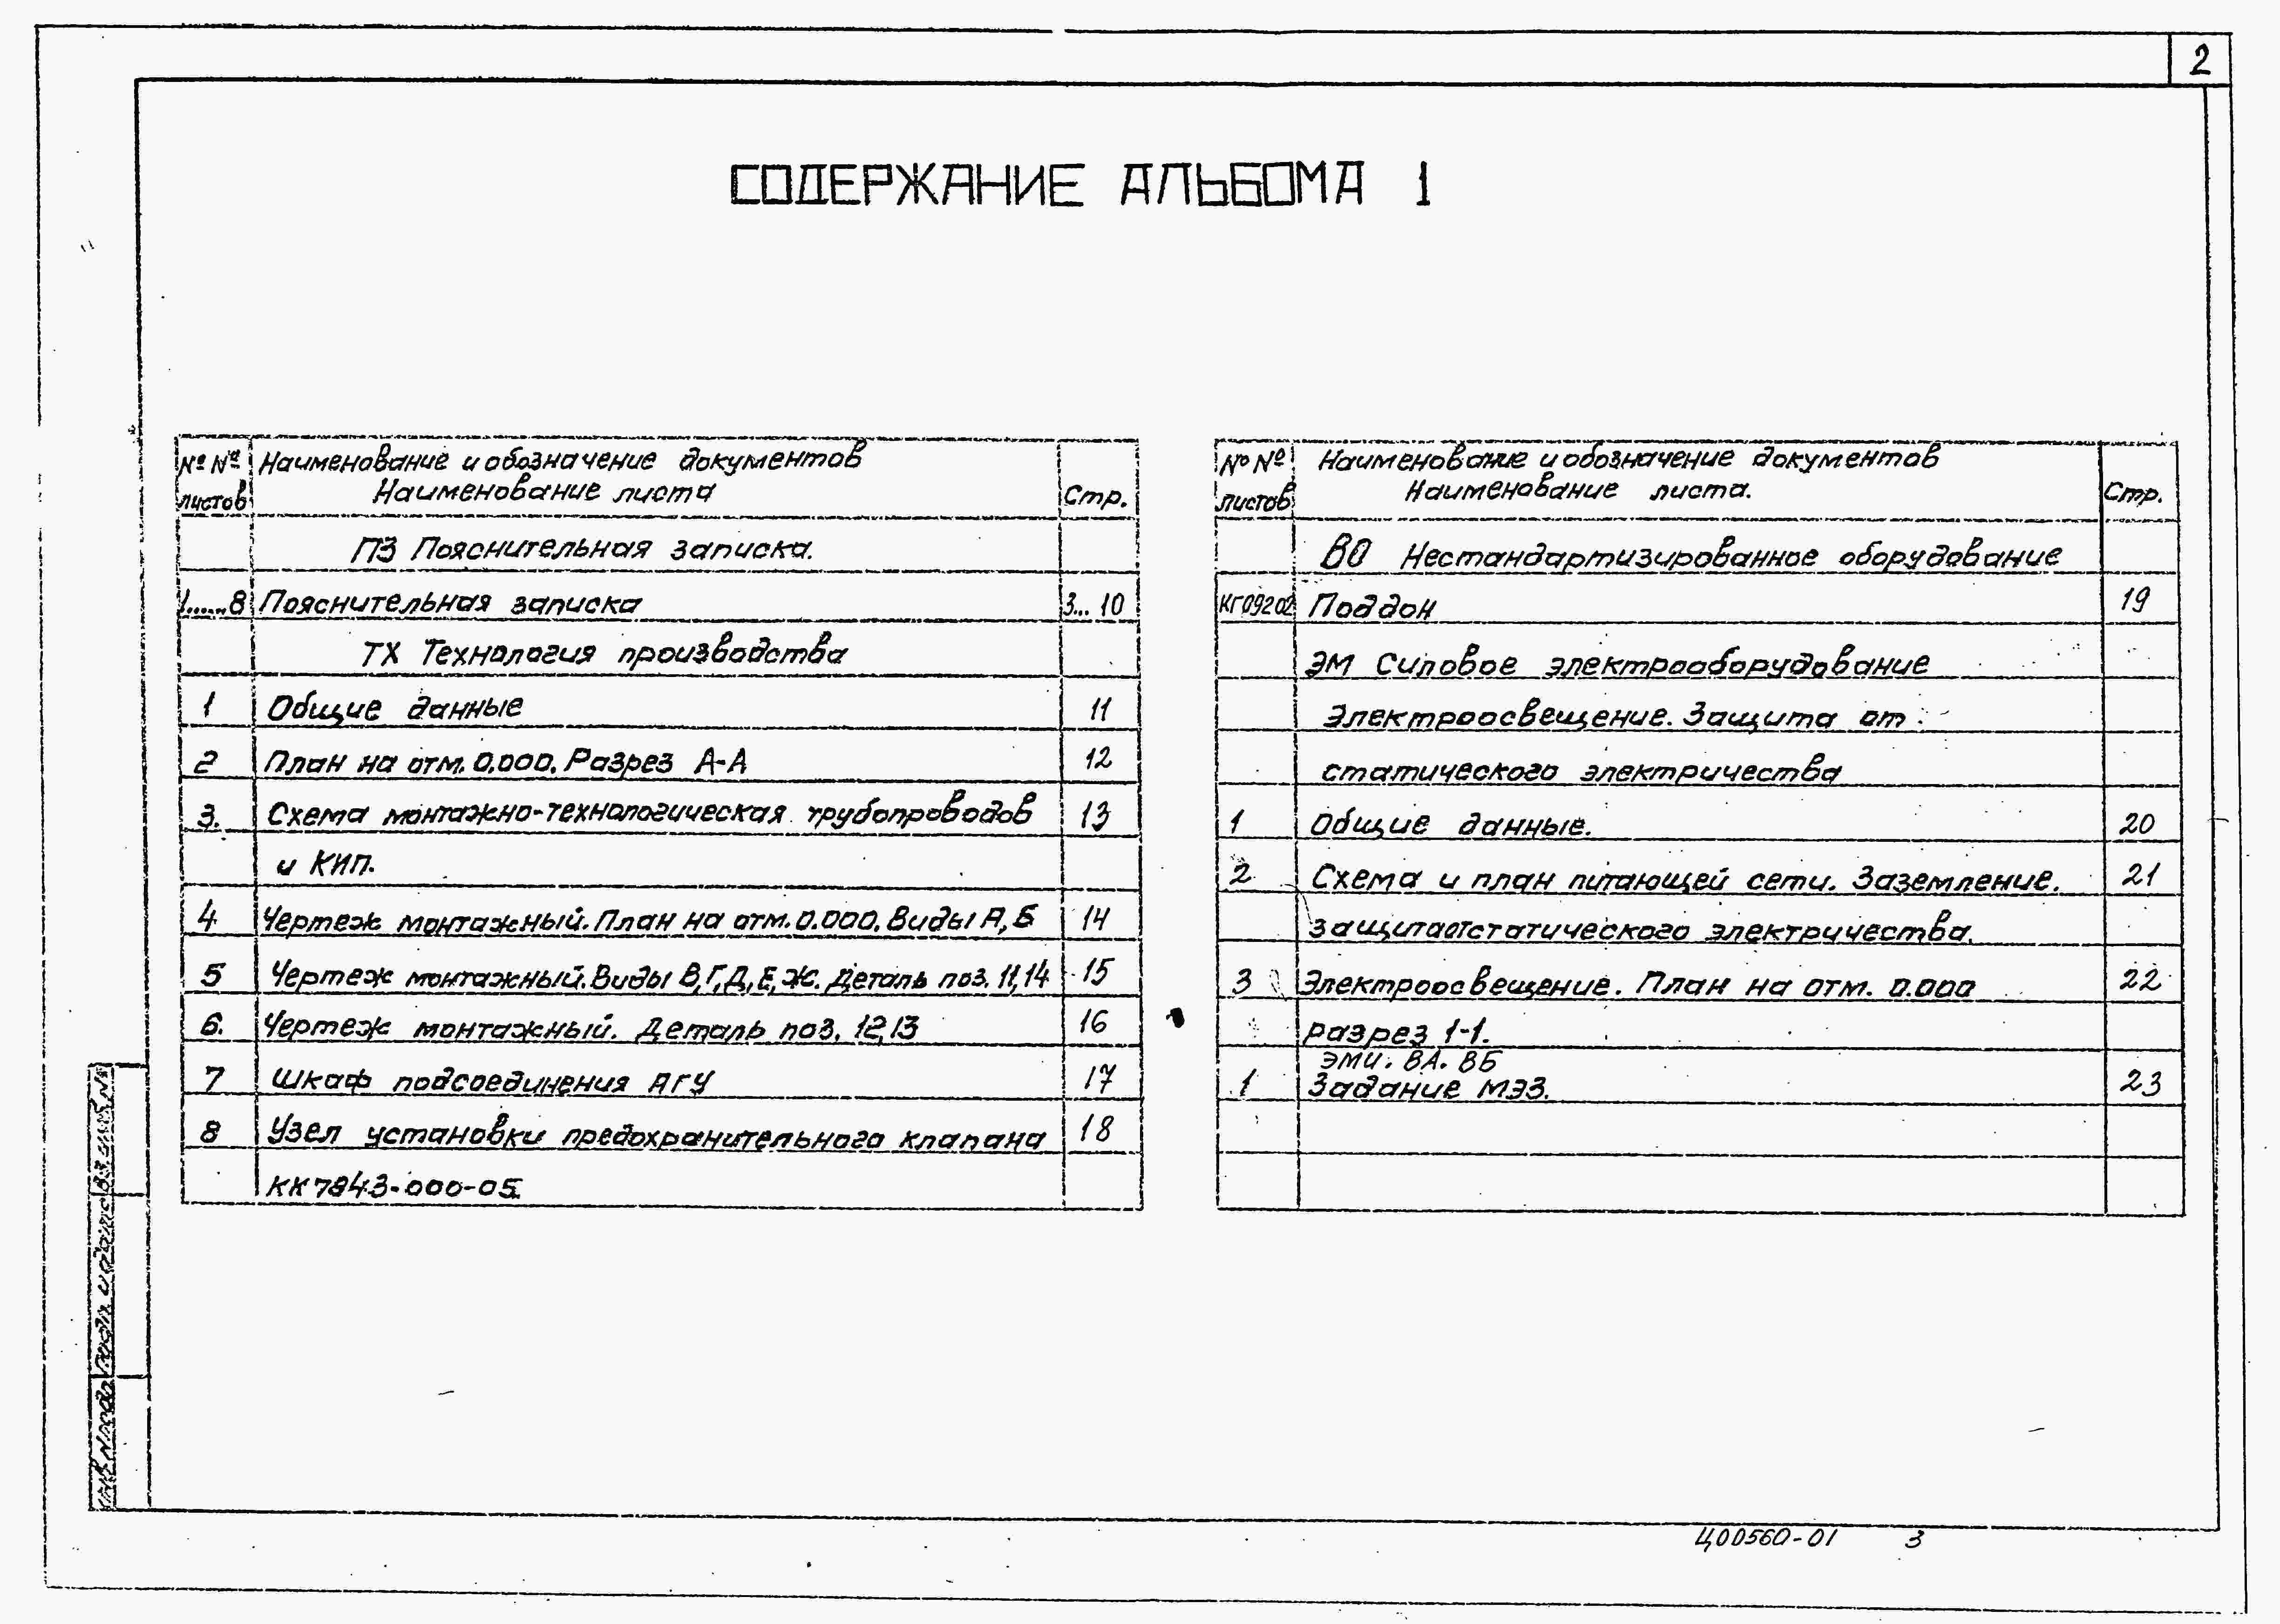 2
СОДЕРЖАНИЕ АЛЬБОМА 1
№ №
листов
Наименование и обозначение документов
Наименование листа
Стр.
ПЗ Пояснительная записка.
1......8 Пояснительная записка 3... 10
ТХ Технология производства
1 Общие данные 11
2 План на отм. 0.000. Разрез А-А 12
3. Схема монтажно-технологическая трубопроводов 13
и КИП.
4 Чертеж монтажный. План на отм. 0.000. Виды А, Б 14
5 Чертеж монтажный. Виды В, Г, Д, Е, Ж. Деталь поз. 11,14 15
6. Чертеж монтажный. Деталь поз. 12,13 16
7 Шкаф подсоединения АГУ 17
8 Узел установки предохранительного клапана 18
КК 7843-000-05.
№ №
листов
Наименование и обозначение документов
Наименование листа.
Стр.
ВО Нестандартизированное оборудование
КГ09202 Поддон 19
ЭМ Силовое электрооборудование
Электроосвещение. Защита от
статического электричества
1 Общие данные. 20
2 Схема и план питающей сети. Заземление. 21
защита от статического электричества.
3 Электроосвещение. План на отм. 0.000 22
разрез 1-1.
ЭМИ. ВА. ВБ
1 Задание МЭЗ. 23
Инв. № подл. Подпись и дата Взам. инв. №
Ц00560-01 3